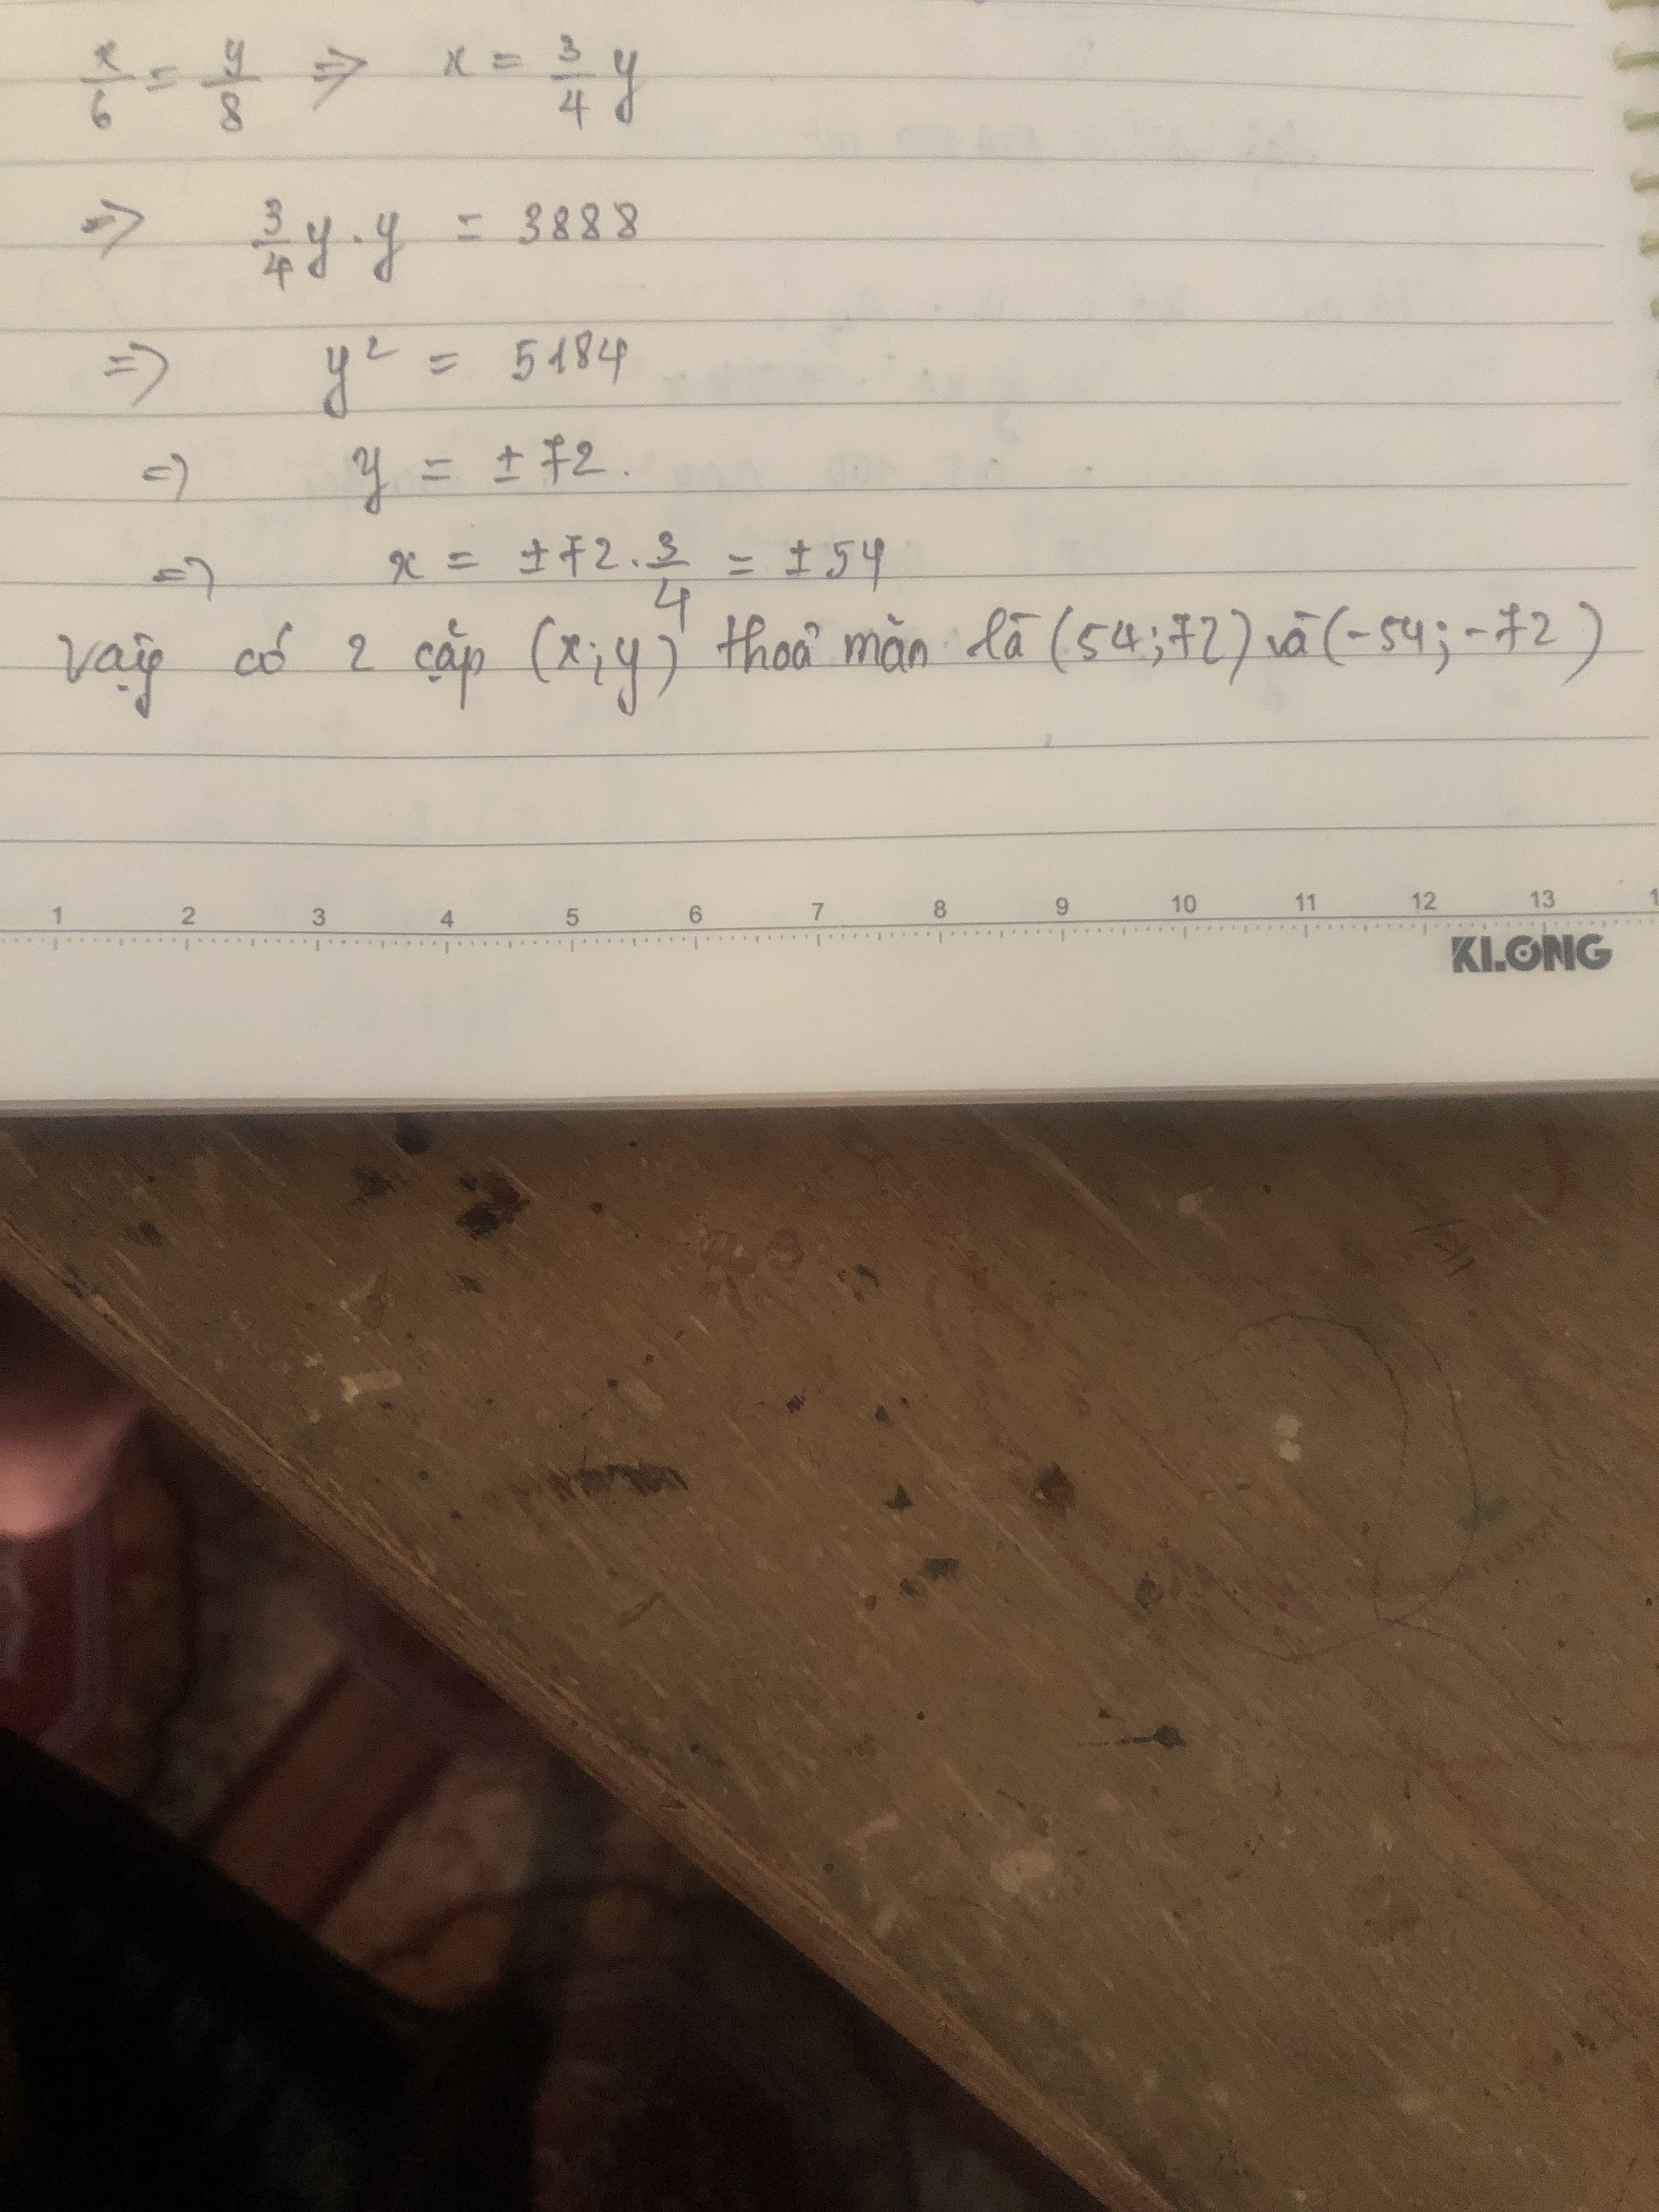 x/6 = y/8 => x = 3/4 y
=> 3/4 y . y = 3888
=> y² = 5184
=> y = ± 72.
=> x = ±72 . 3/4 = ± 54
Vậy có 2 cặp (x;y) thoả mãn là (54;72) và (-54;-72)
1 2 3 4 5 6 7 8 9 10 11 12 13
KLONG